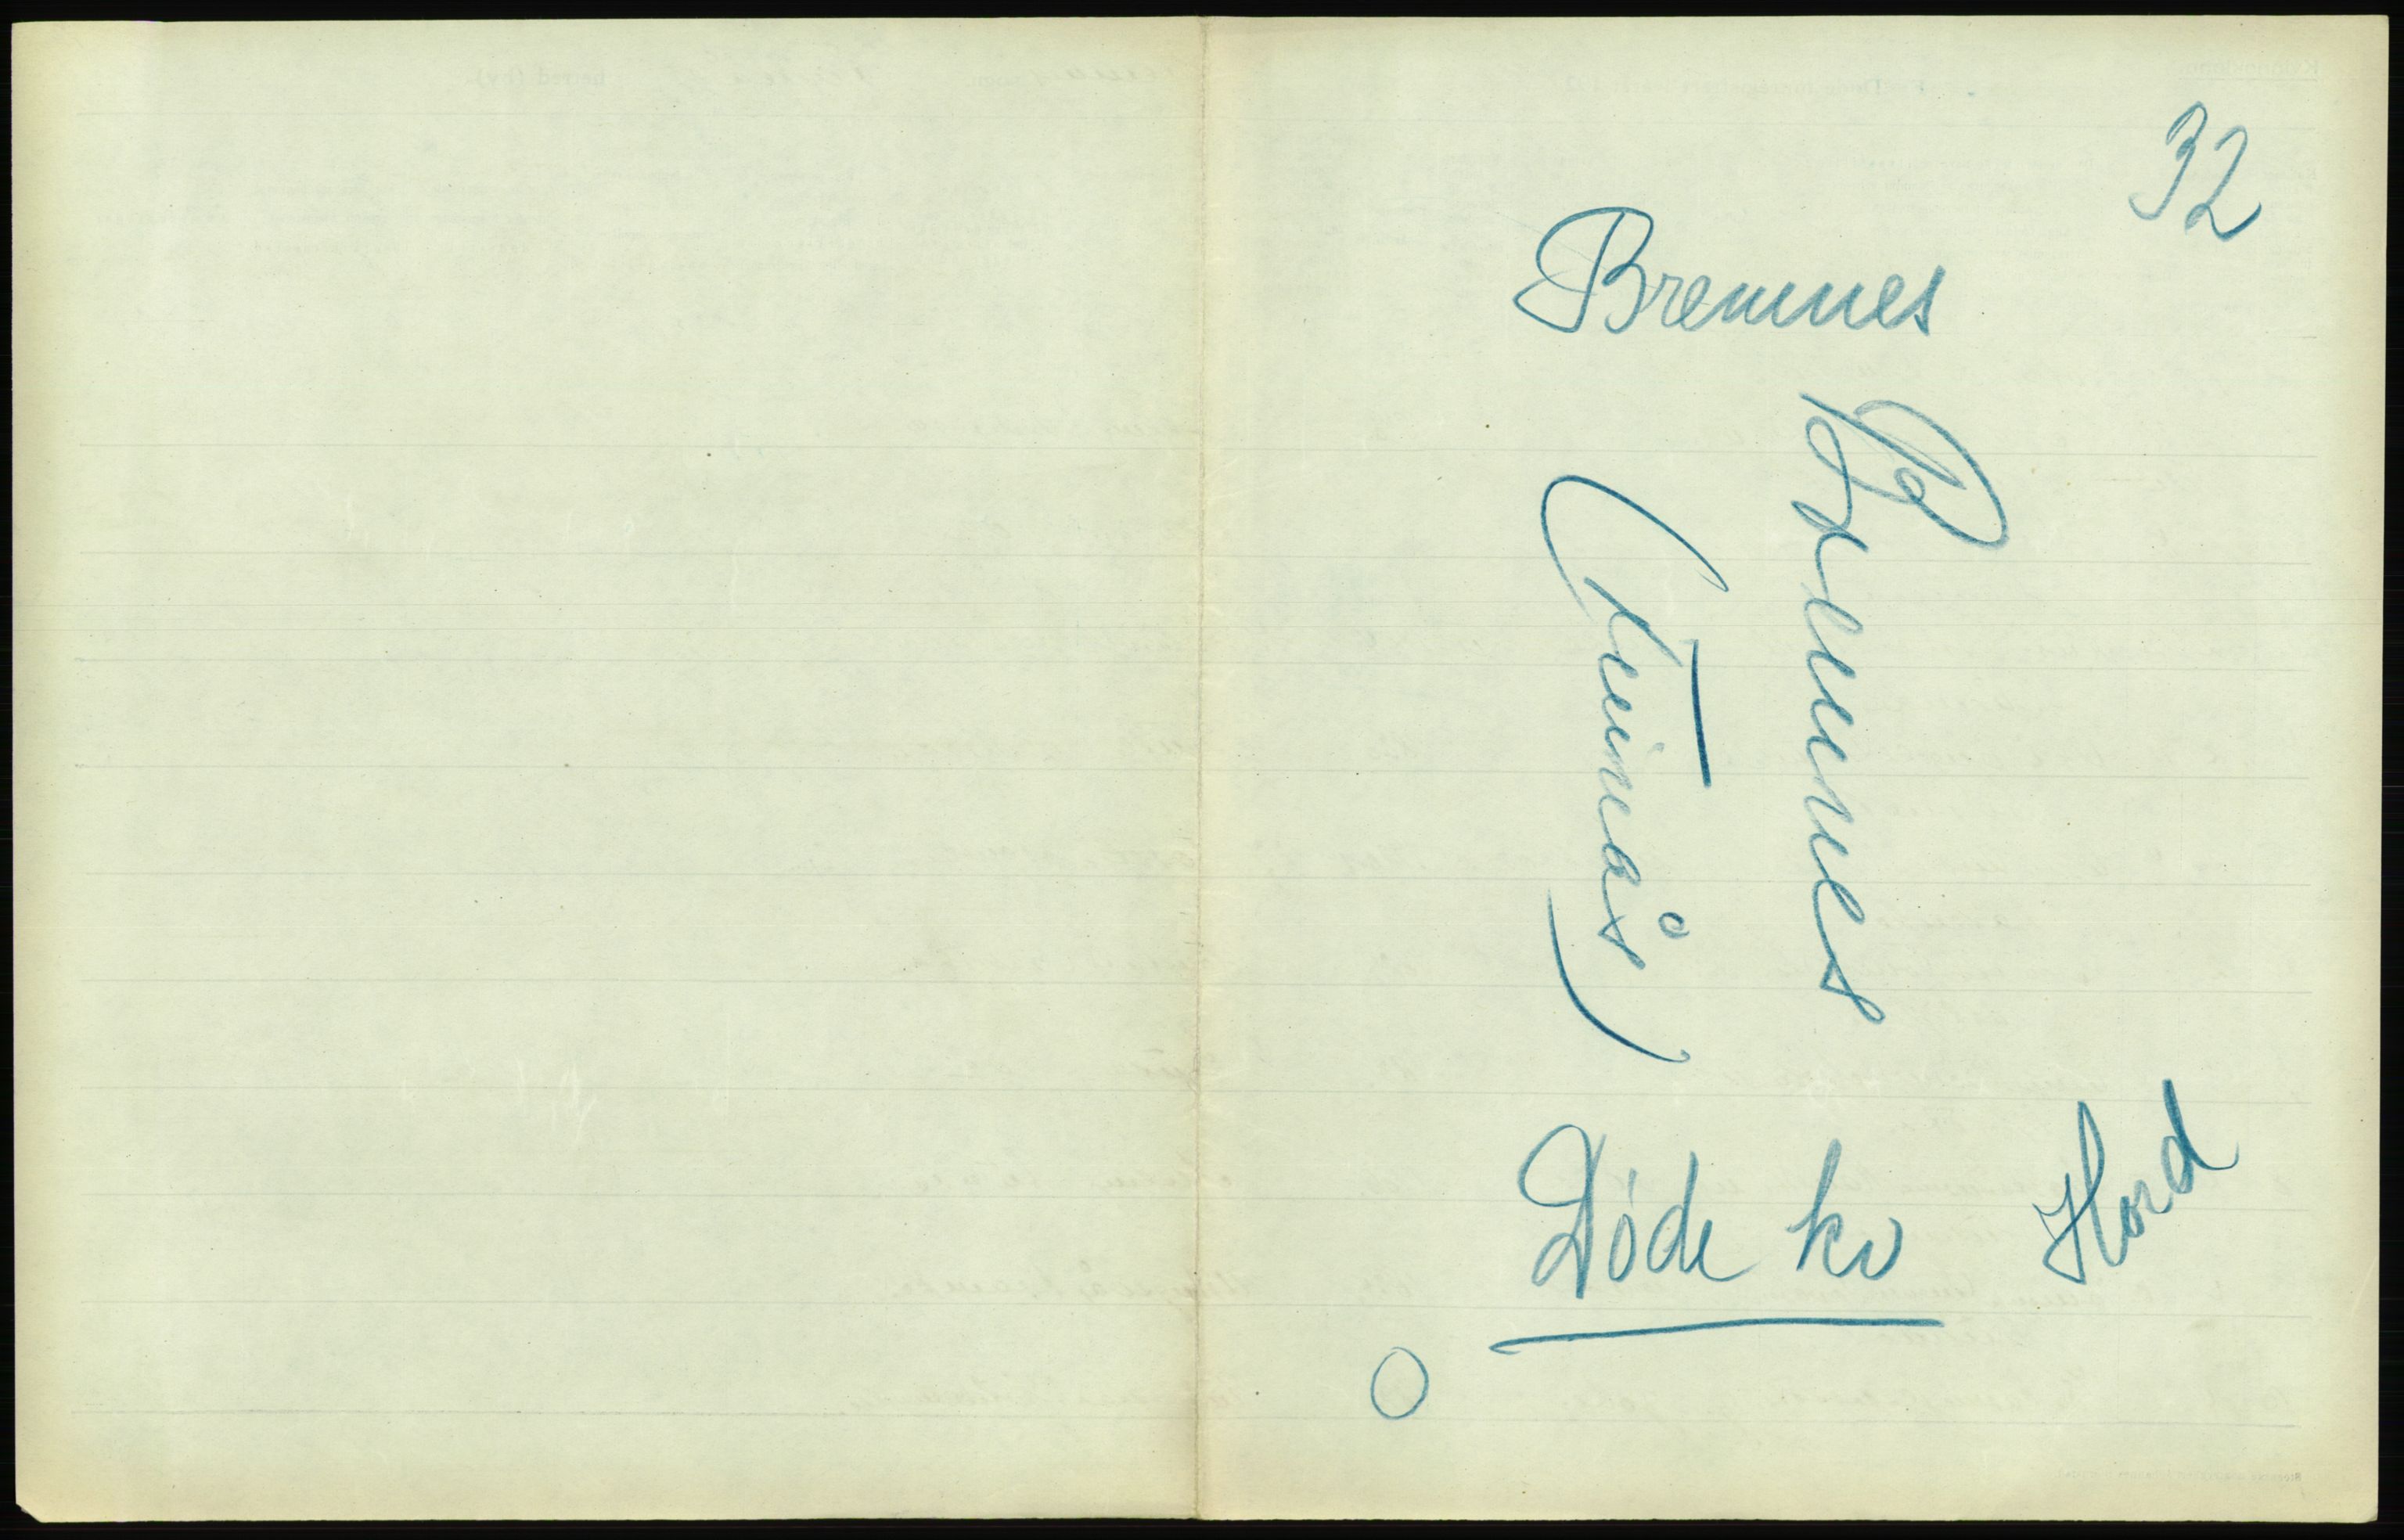 32
Bremnes
Bremnes
(Finnås)
Døde kv
Hord
0